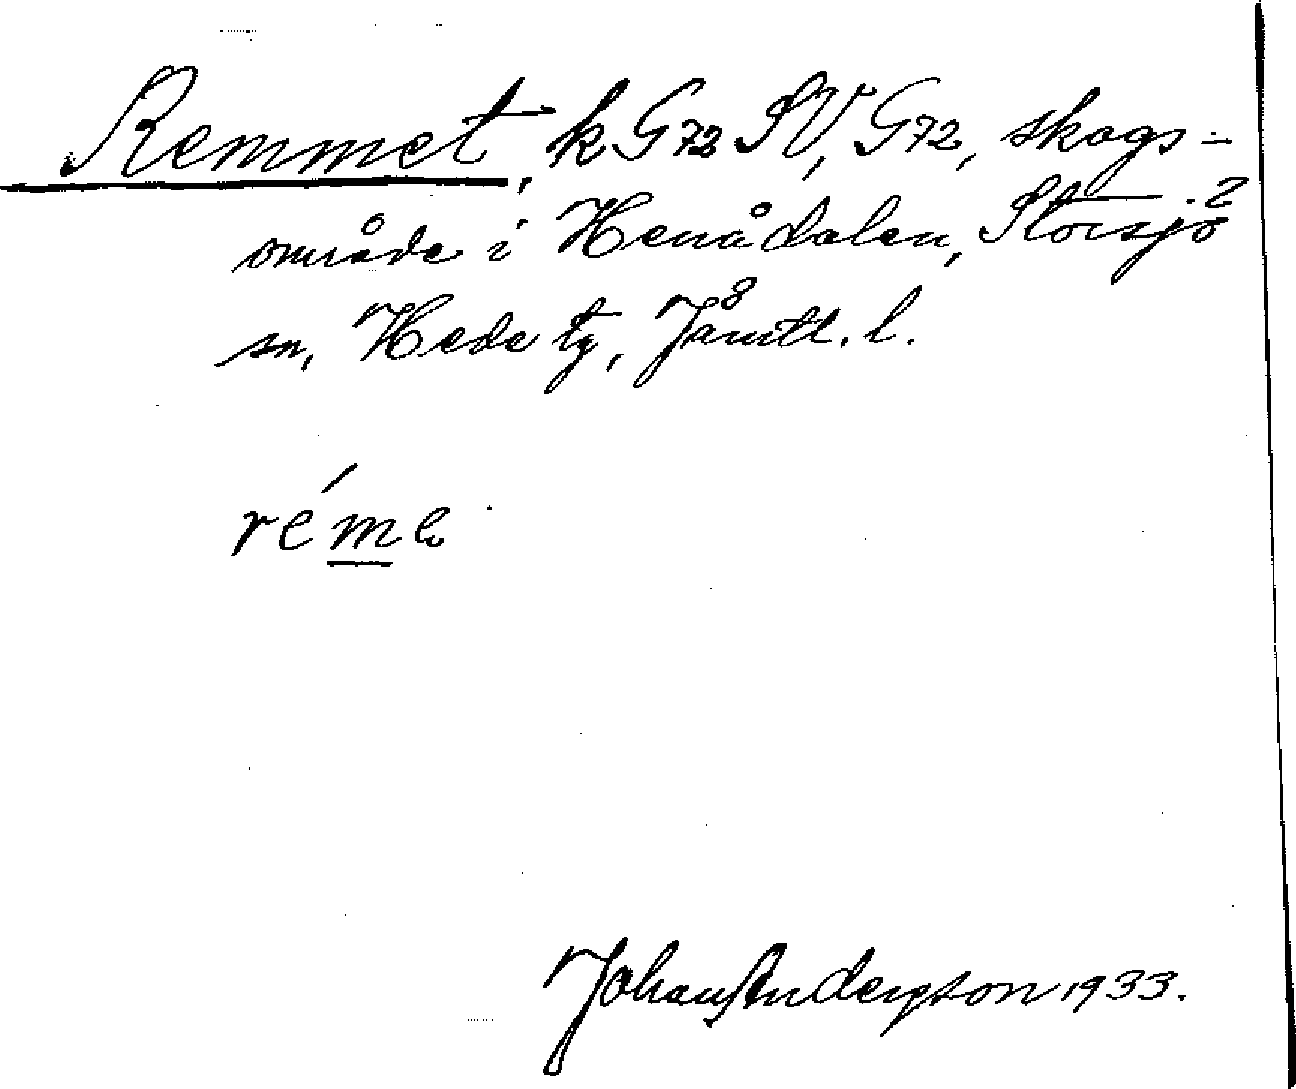 Remmet, k G72 SV, G72, skogs-
område i Henådalen, Storsjö
sn, Hede tg, Jämtl. l.
réme
Johan Anderzson 1933.